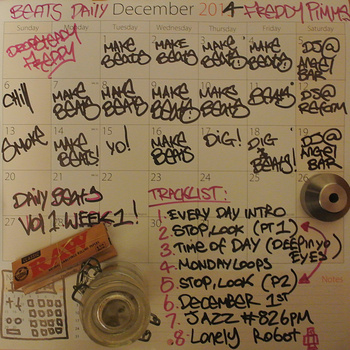 BEATS DAILY December 2014 FREDDY PIMMS
Sunday Monday Tuesday Wednesday Thursday Friday Saturday
DROPSTEADY FREDDY
1 MAKE BEATS
2 MAKE BEATS
3 MAKE BEATS
4 MAKE BEATS
5 DJ@ ANGEL BAR
6 CHILL
7 MAKE BEATS
8 MAKE BEATS
9 MAKE BEATS
10 MAKE BEATS
11 BEATS
12 DJ@
13 SMOKE
14 MAKE BEATS!
15 YO!
16 MAKE BEATS
17 DIG!
18 DIG & BEATS!
19 DJ@ ANGEL BAR
20
21
22
23
24
25
26
DAILY BEATS
VOL 1 WEEK 1!
27
RAW
TRACKLIST:
1. EVERY DAY INTRO
2. STOP, LOOK (PT 1)
3. TIME OF DAY (DEEP IN YO EYES)
4. MONDAY LOOPS
5. STOP, LOOK (P2)
6. DECEMBER 1st
7. JAZZ #826PM
8. LONELY ROBOT
Notes